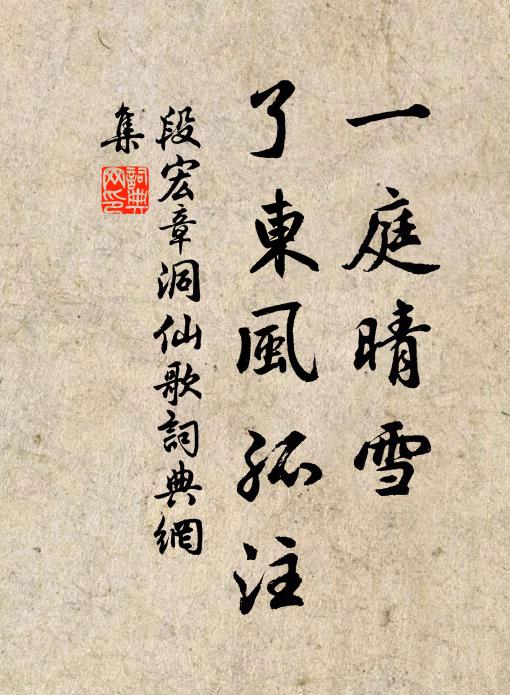 一庭晴雪
了東風孤注
段宏章洞仙歌詞典網
集
詞典網印